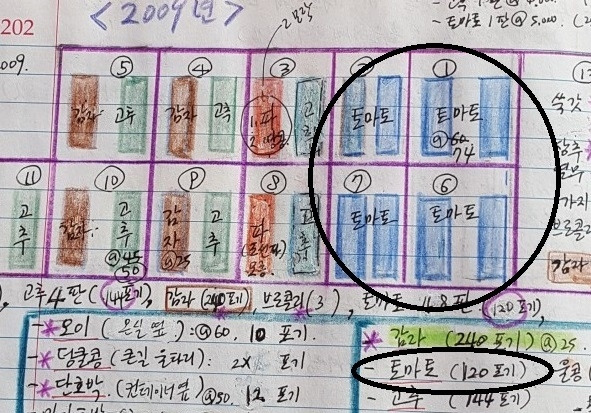 <2009년>
202
2009.
- 토마토 1판 @ 5,000.
2모작
⑤ ④ ③ ② ①
감자 고추 감자 고추 1.파 고추 토마토 토마토
@ 60
74
쑥갓
⑪ ⑩ ⑨ ⑧ ⑦ ⑥
고추 감자 고추 감자 고추 파 토마토 토마토
@45 @25
50
가지
브로콜리
감자
고추4판(144포기), 감자(240포기), 브로콜리(3), 토마토 4.8판(120포기),
- *오이 (온실 옆) : @60, 10 포기.
- *덩쿨콩 (큰길 울타리) : 2X 포기
- *단호박. (컨테이너옆) @50. 12 포기
* 감자 (240포기) @25.
- 토마토 (120포기)
- 고추 (144포기)